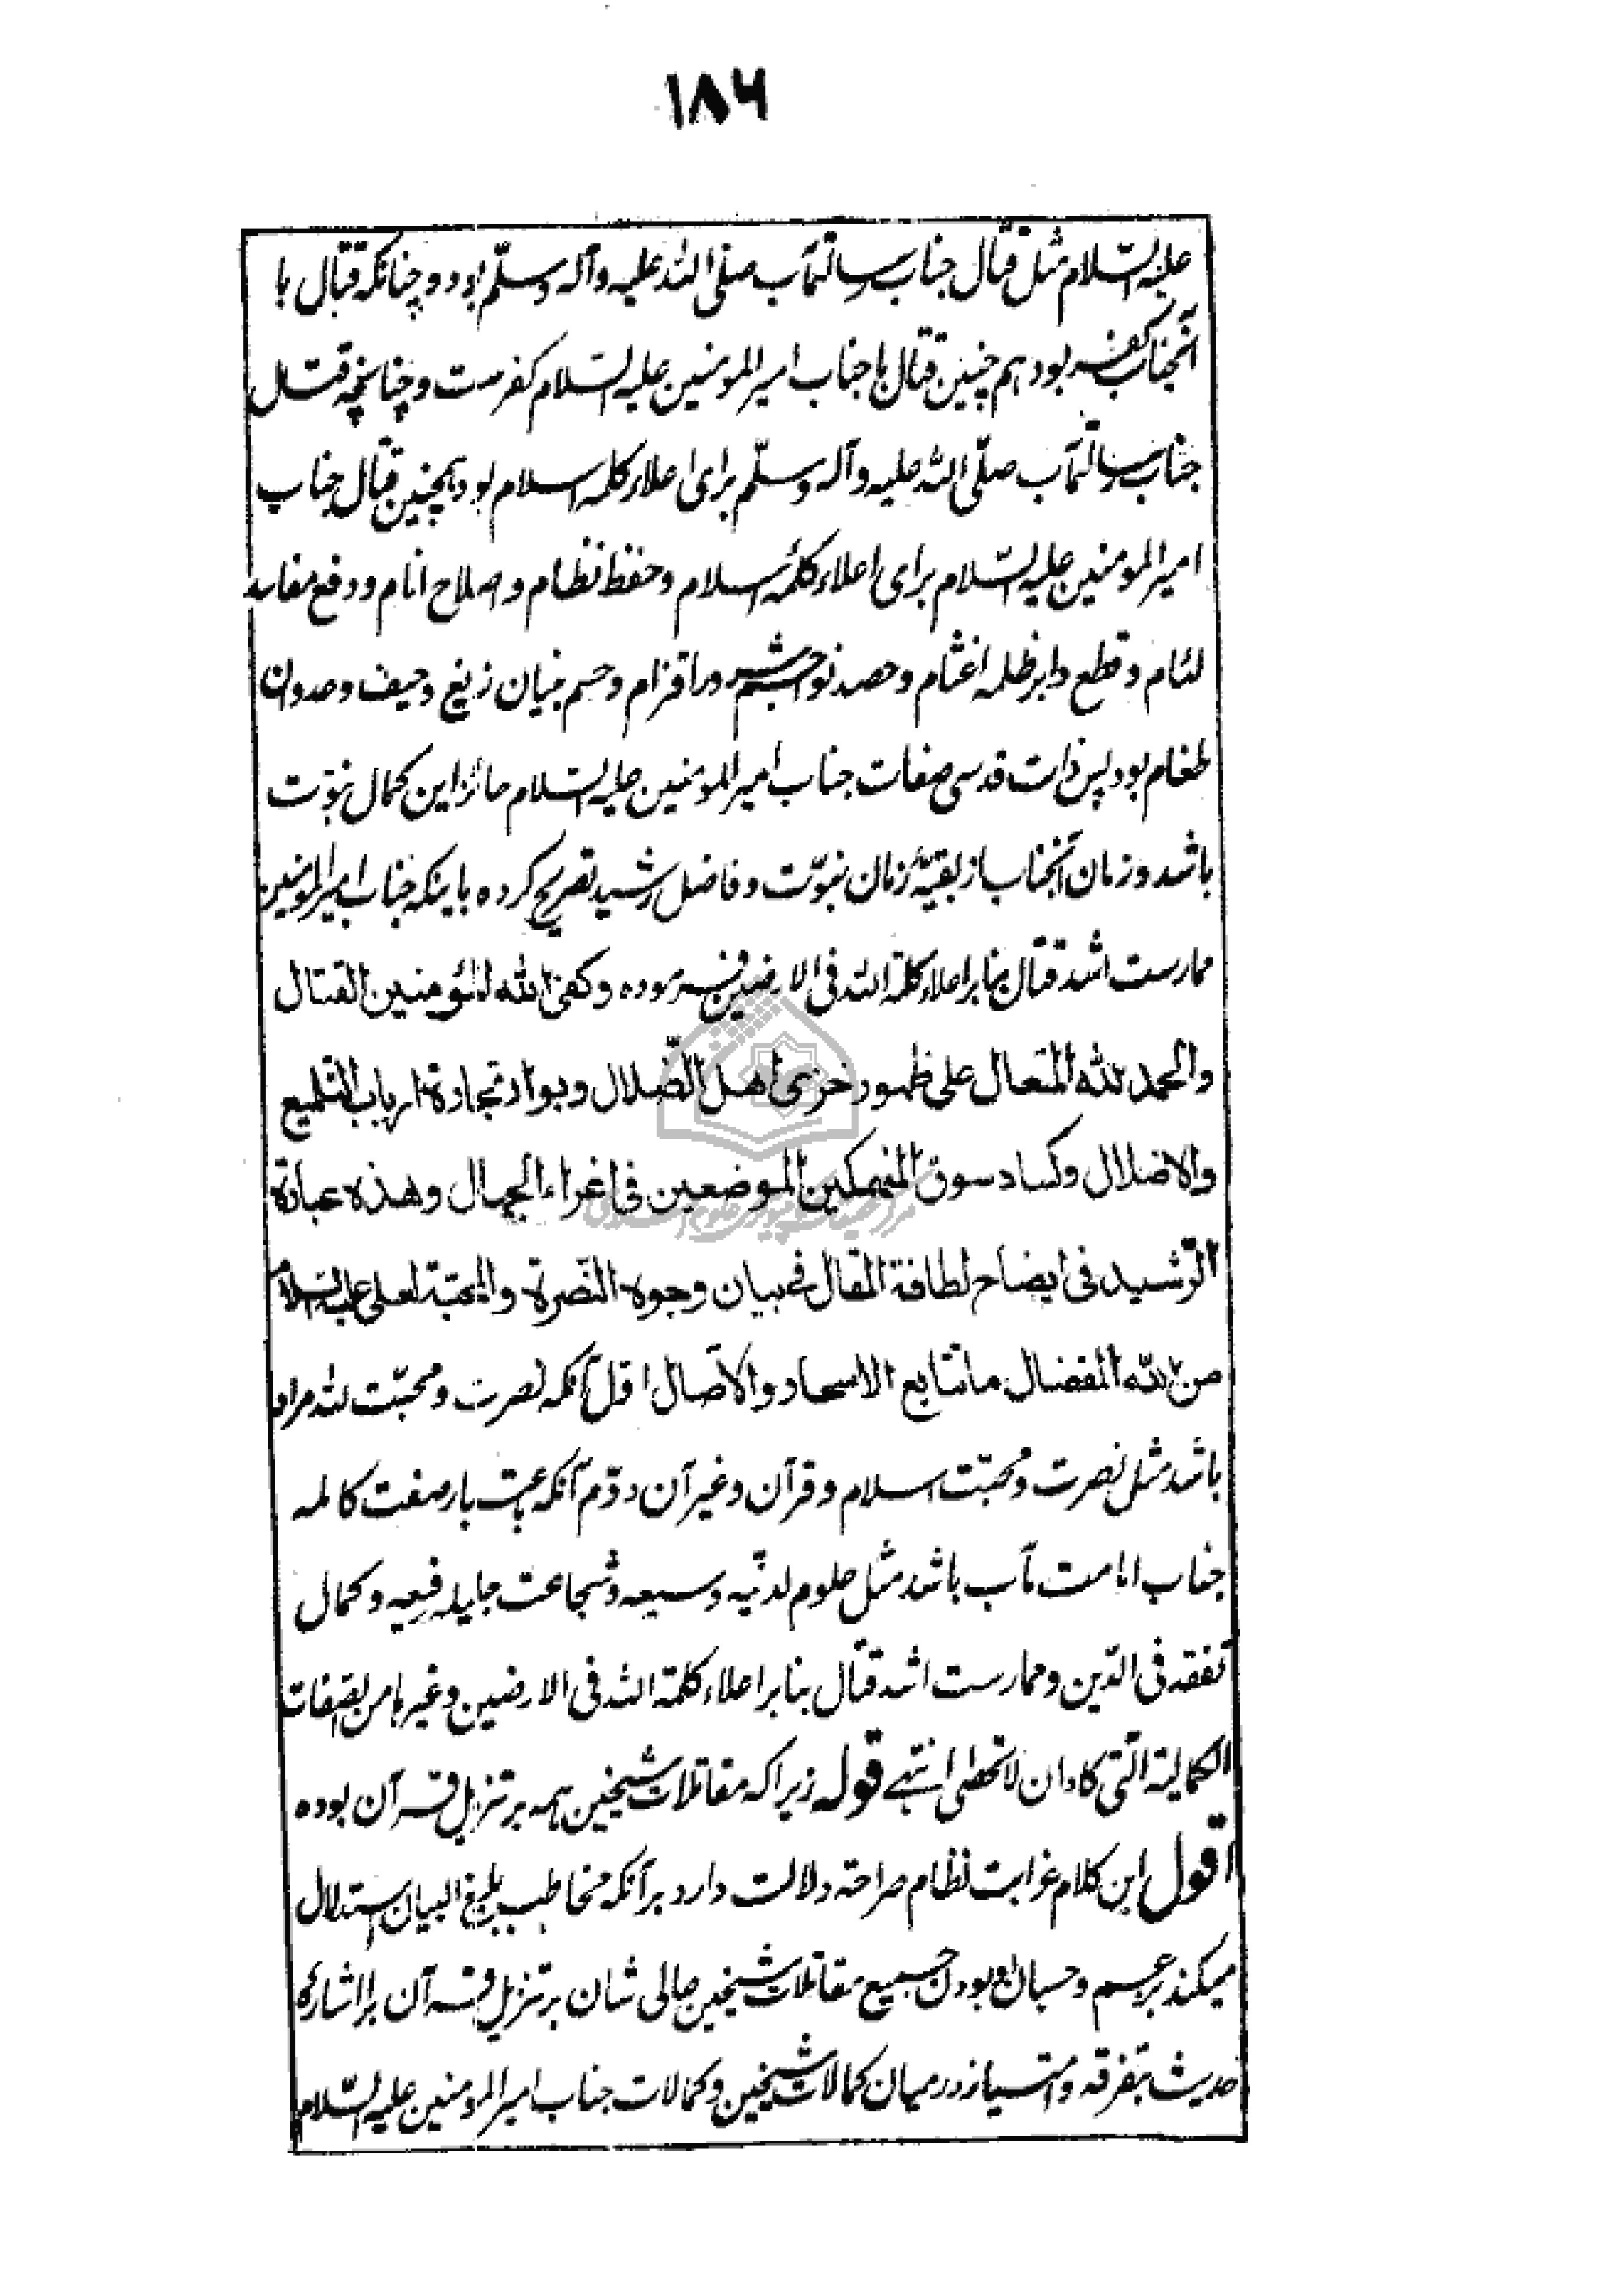 ۱۸۶
علیه السّلام مثل قتال جناب رسالتمآب صلی الله علیه وآله وسلّم بود و چنانکه قتال با
آنجناب کفر بود هم چنین قتال با جناب امیر المومنین علیه السّلام کفرست و چنانچه قتال
جناب رسالتمآب صلّی الله علیه وآله وسلّم برای اعلاء کلمه اسلام بود همچنین قتال جناب
امیر المومنین علیه السّلام برای اعلاء کلمۂ اسلام و حفظ نظام و اصلاح انام و دفع مفاسد
لئام و قطع دابر ظلمه اغثام و حصد نواجم اقزام و حسم بنیان زیغ و حیف و عدوان
طغام بود پس ذات قدسی صفات جناب امیر المومنین علیه السّلام حائز این کمال نبوّت
باشد و زمان آنجناب از بقیّۂ زمان نبوّت و فاضل رشید تصریح کرده باینکه جناب امیر المومنین
ممارست اشد قتال بنابر اعلاء کلمة الله فی الارضین فرموده وکفی الله المؤمنین القتال
والحمد لله المتعال علی ظهور خزی اهل الضّلال وبوار تجارة ارباب التلمیع
والاضلال وکساد سوق المنهمکین الموضعین فی اغراء الجهال وهذه عبارة
الرّشید فی ایضاح لطافة المقال فی بیان وجوه النّصرة والمحبّة لعلی علیه السلام
من الله المفضال ما تتابع الاسحار والآصال اوّل آنکه نصرت و محبّت لله مراد
باشد مثل نصرت و محبّت اسلام و قرآن و غیر آن دوّم آنکه باعتبار صفت کامله
جناب امامت مآب باشد مثل علوم لدنّیه وسیعه و شجاعت جلیله رفیعه و کمال
تفقه فی الدّین و ممارست اشد قتال بنابر اعلاء کلمة الله فی الارضین و غیرها من الصّفات
الکمالیة الّتی کادان لاتحصی انتهی قوله زیرا که مقاتلات شیخین همه بر تنزیل قرآن بوده
اقول این کلام غرابت نظام صراحة دلالت دارد بر آنکه مخاطب بلیغ البیان استدلال
میکند بزعم و حسبان بودن جمیع مقاتلات شیخین عالی شان بر تنزیل قرآن بر اشاره
حدیث بتفرقه و امتیاز درمیان کمالات شیخین و کمالات جناب امیر المومنین علیه السّلام